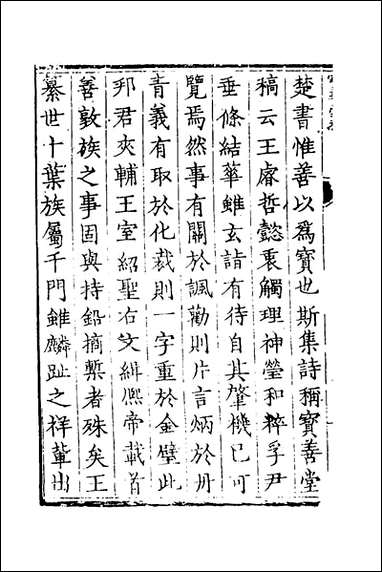 楚書惟善以爲寶也斯集詩稱寶善堂
稿云王睿哲懿衷觸理神瑩和粹孚尹
垂條結華雖玄詣有待自其肇機已可
覽焉然事有關於諷勸則片言炳於丹
青義有取於化裁則一字重於金璧此
邦君夾輔王室紹聖右文緝熙帝載首
善敦族之事固與持鉛摘槧者殊矣王
纂世十葉族屬千門雖麟趾之祥葷出